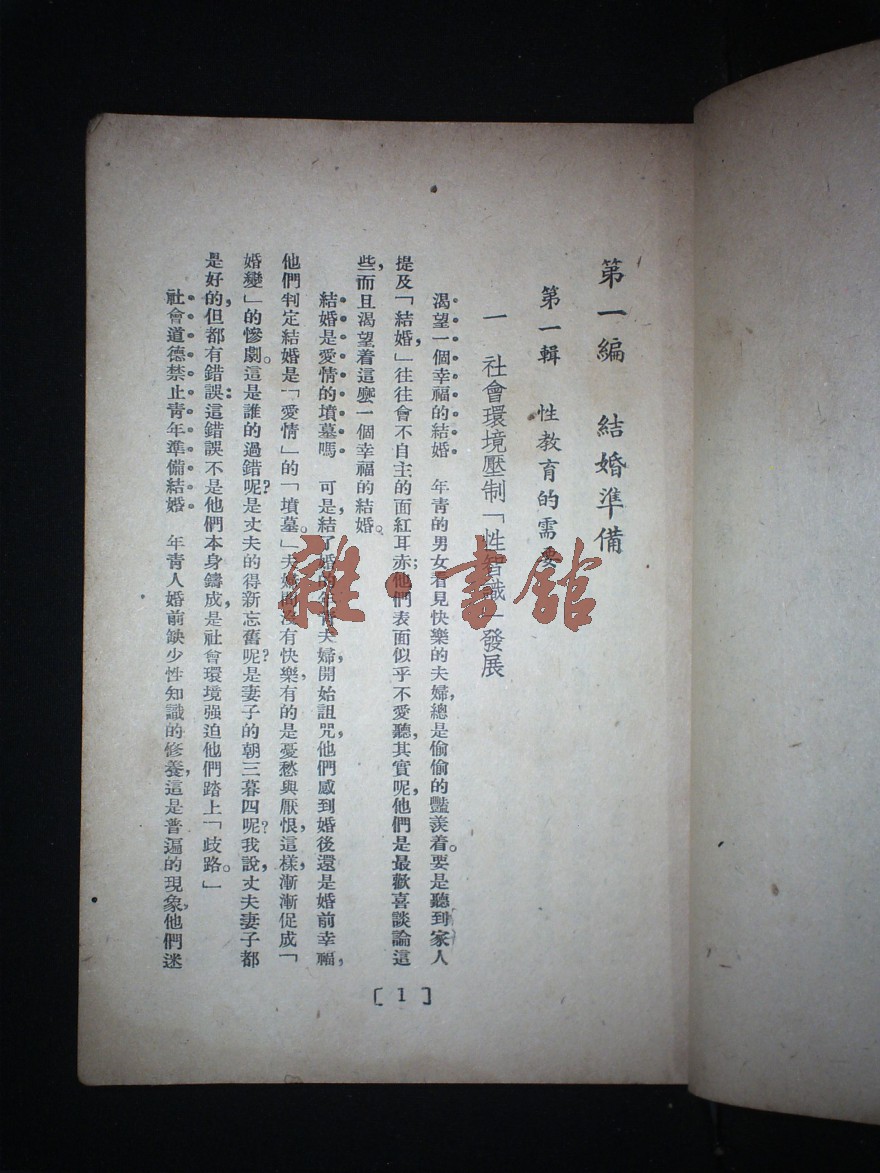 第一編　結婚準備
第一輯　性教育的需要
一　社會環境壓制「性智識」發展
渴望一個幸福的結婚　年青的男女看見快樂的夫婦，總是偷偷的豔羨着。要是聽到家人
提及「結婚，」往往會不自主的面紅耳赤；他們表面似乎不愛聽，其實呢，他們是最歡喜談論這
些，而且渴望着這麽一個幸福的結婚。
結婚是愛情的墳墓嗎　可是，結了婚的年青夫婦，開始詛咒，他們感到婚後還是婚前幸福，
他們判定結婚是「愛情」的「墳墓。」夫婦間沒有快樂，有的是憂愁與厭恨，這樣漸漸促成「
婚變」的慘劇。這是誰的過錯呢？是丈夫的得新忘舊呢？是妻子的朝三暮四呢？我說，丈夫妻子都
是好的，但都有錯誤：這錯誤不是他們本身鑄成，是社會環境强迫他們踏上「歧路。」
社會道德禁止青年準備結婚　年青人婚前缺少性知識的修養，這是普遍的現象，他們迷
〔1〕
雜·書館